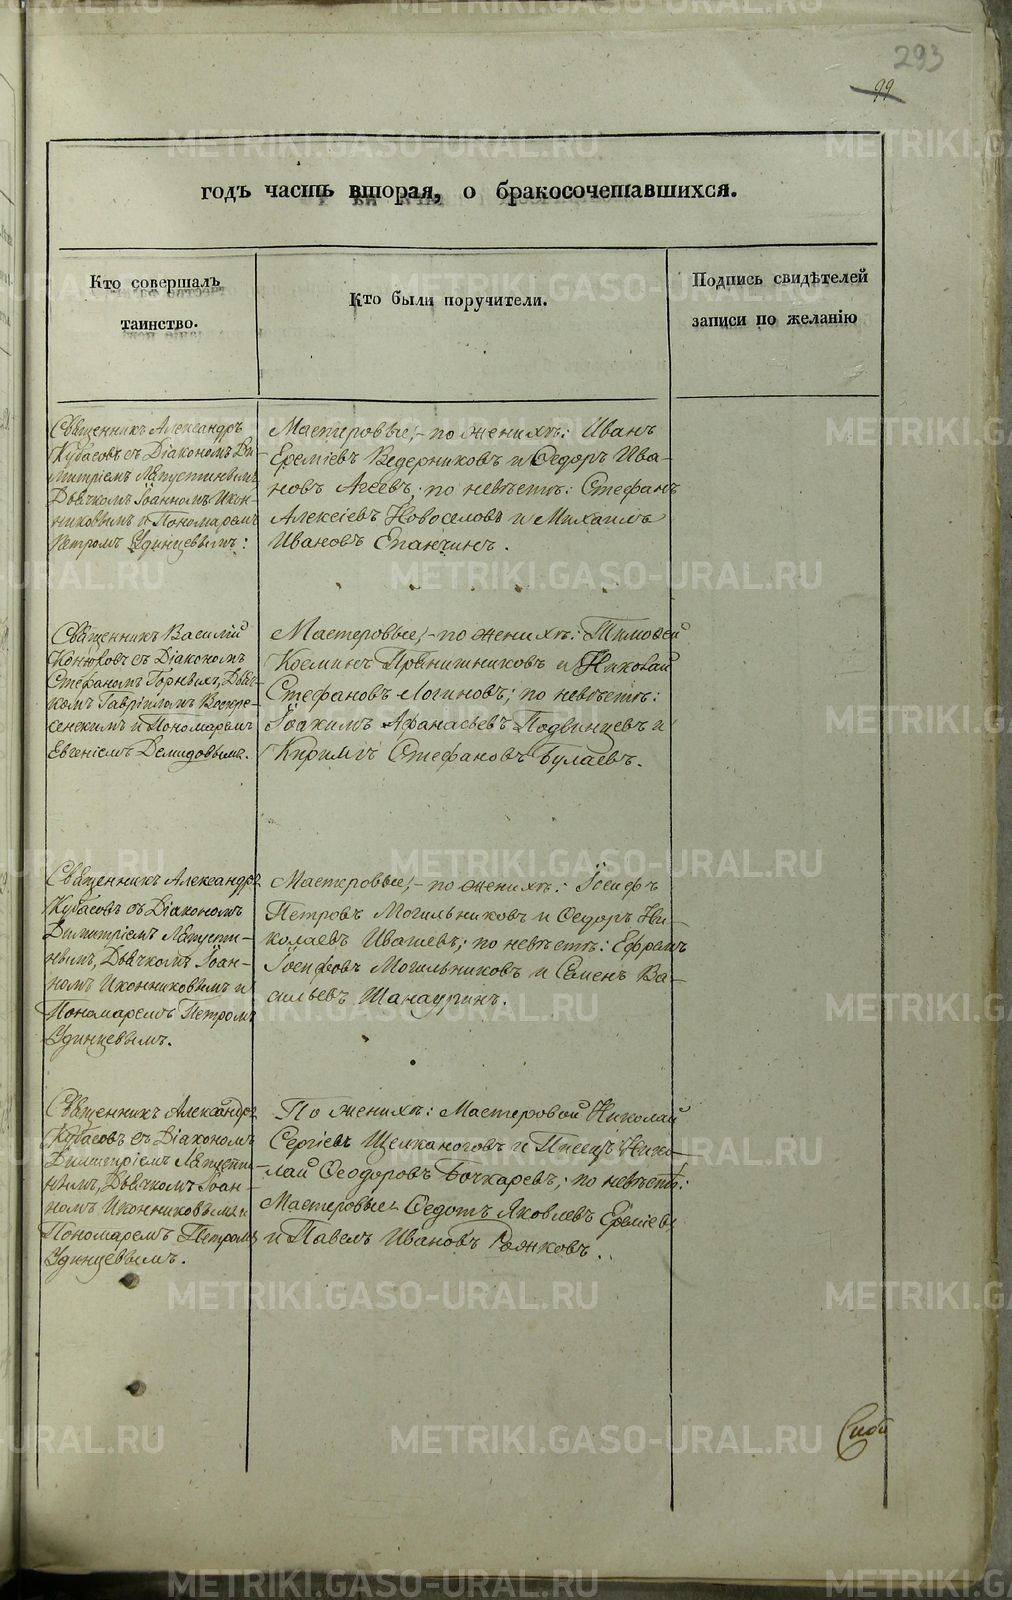 293
99
годъ часть вторая, о бракосочетавшихся.
Кто совершалъ
таинство.
Кто были поручители.
Подпись свидѣтелей
записи по желанію
Священникъ Александръ
Кубасовъ съ Діакономъ Ди-
митріемъ Ляпустинымъ
Дьячкомъ Іоанномъ Икон-
никовымъ и Пономаремъ
Петромъ Удинцевымъ:
Мастеровые,- по женихѣ: Иванъ
Еремѣевъ Ведерниковъ и Ѳедоръ Ива-
новъ Агеевъ; по невѣстѣ: Стефанъ
Алексіевъ Новоселовъ и Михаилъ
Ивановъ Епанчинъ.
Священникъ Василій
Конюховъ съ Діакономъ
Стефаномъ Горныхъ, Дьяч-
комъ Гавріиломъ Воскре-
сенскимъ и Пономаремъ
Евгеніемъ Демидовымъ.
Мастеровые,- по женихѣ: Тимоѳей
Козминъ Прянишниковъ и Николай
Стефановъ Логиновъ; по невѣстѣ:
Іоакимъ Афанасьевъ Подвинцевъ и
Кирилъ Стефановъ Булаевъ.
Священникъ Александръ
Кубасовъ съ Діакономъ
Димитріемъ Ляпусти-
нымъ, Дьячкомъ Іоан-
номъ Иконниковымъ и
Пономаремъ Петромъ
Удинцевымъ.
Мастеровые,- по женихѣ: Іосифъ
Петровъ Могильниковъ и Ѳедоръ Ни-
колаевъ Ивашевъ; по невѣстѣ: Ефремъ
Іосифовъ Могильниковъ и Семенъ Ва-
сильевъ Шанауринъ.
Священникъ Александръ
Кубасовъ съ Діакономъ
Димитріемъ Ляпусти-
нымъ, Дьячкомъ Іоан-
номъ Иконниковымъ и
Пономаремъ Петромъ
Удинцевымъ.
По женихѣ: Мастеровой Николай
Сергіевъ Щелканоговъ и Писецъ Нико-
лай Ѳеодоровъ Бочкаревъ; по невѣстѣ:
Мастеровые Ѳедотъ Яковлевъ Еремѣевъ
и Павелъ Ивановъ